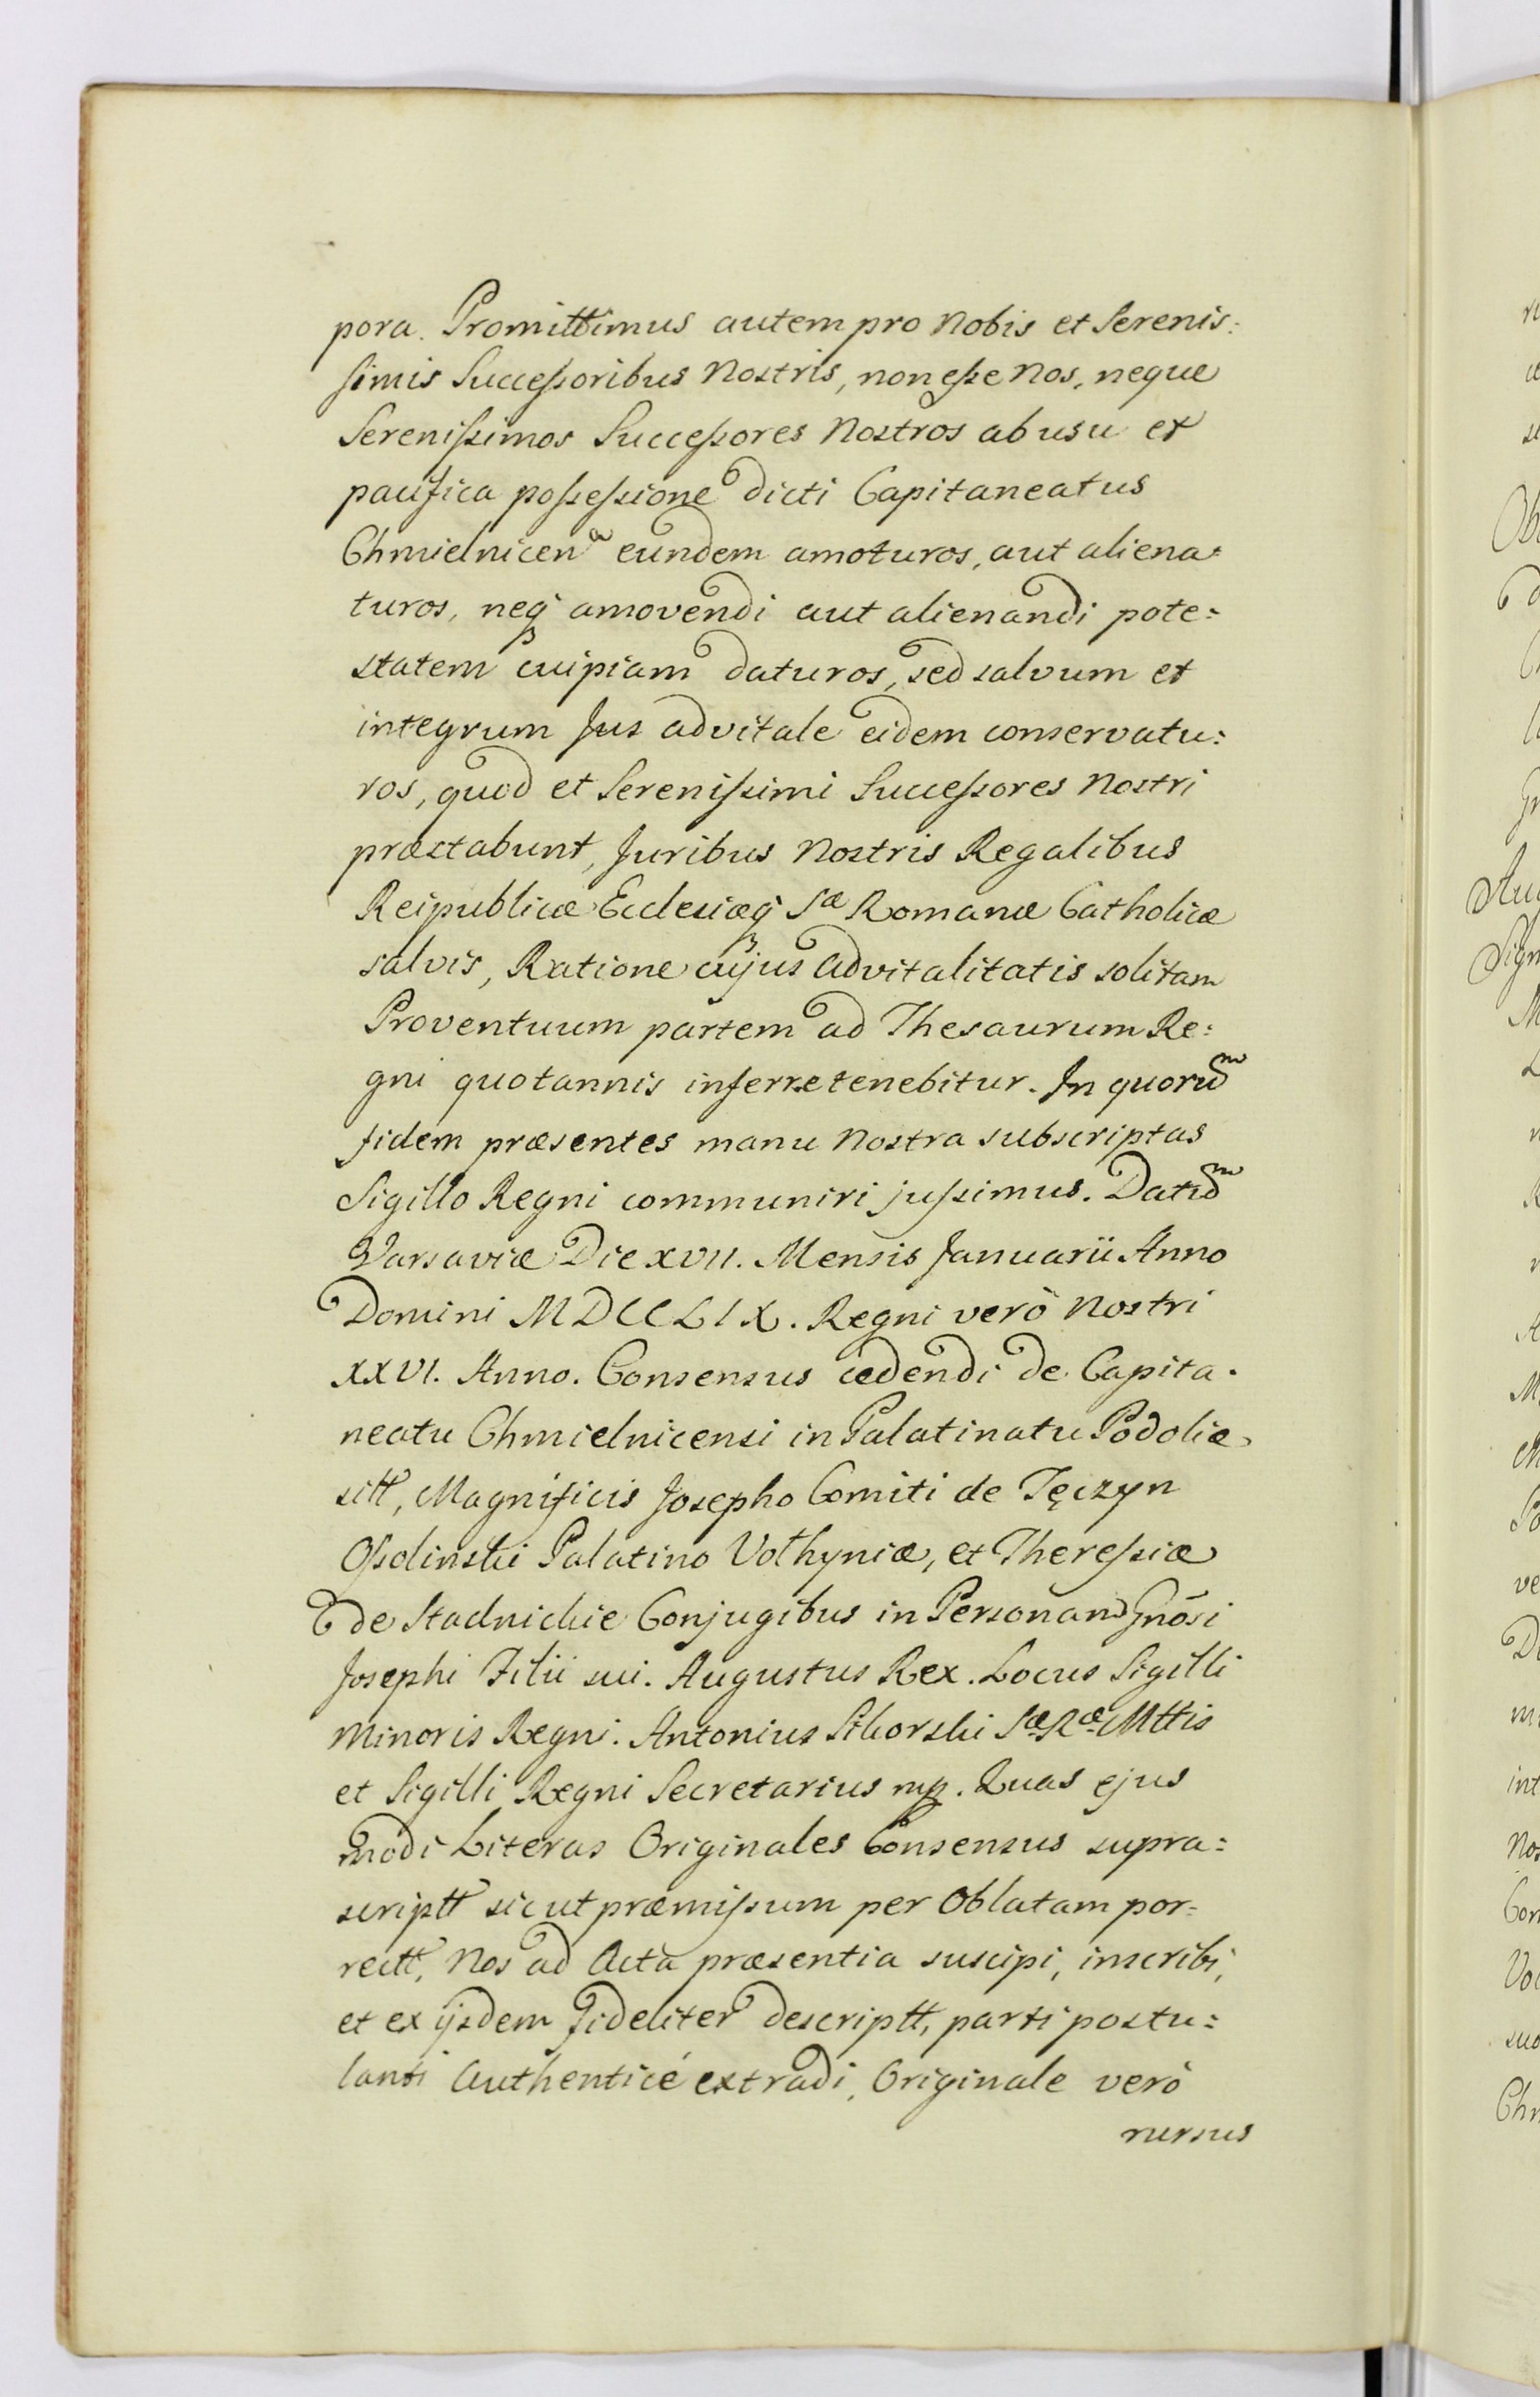 pora. Promittimus autem pro Nobis et Serenis:
simis Successoribus Nostris, non esse Nos, neque
Serenissimos Successores Nostros ab usu et
pacifica possessione dicti Capitaneatus
Chmielnicen eundem amoturos, aut aliena:
turos, neq amovendi aut alienandi pote:
statem cuipiam daturos, sed salvum et
integrum Jus advitale eidem conservatu:
ros, quod et Serenissimi Successores Nostri
præstabunt, Juribus Nostris Regalibus
Reipublicæ Ecclesiæq Sæ Romanæ Catholicæ
salvis, Ratione cujus Advitalitatis solitam
Proventuum partem ad Thesaurum Re:
gni quotannis inferre tenebitur. In quorum
fidem præsentes manu Nostra subscriptas
Sigillo Regni communiri jussimus. Datum
Varsaviæ Die XVII. Mensis Januarii Anno
Domini MDCCLIX. Regni verò Nostri
XXVI. Anno. Consensus cedendi de Capita.
neatu Chmielnicensi in Palatinatu Podoliæ
sitt, Magnificis Josepho Comiti de Tęczyn
Ossolinski Palatino Volhyniæ, et Theressiæ
de Stadnickie Conjugibus in Personam Gnōsi
Josephi Filii sui. Augustus Rex. Locus Sigilli
Minoris Regni. Antonius Sikorski Sæ Ræ Mttis
et Sigilli Regni Secretarius mp. Quas ejus
modi Literas Originales Consensus supra:
scriptt sicut præmissum per Oblatam por:
rectt, Nos ad Acta præsentia suscipi, inscribi,
et ex ijsdem fideliter descriptt, parti postu:
lanti Authenticé extradi, Originale verò
rursus